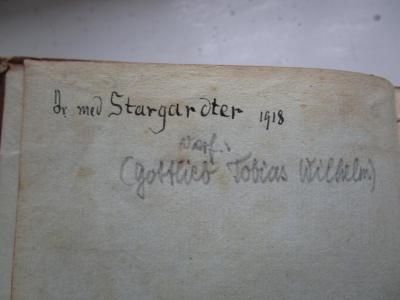 Dr med Stargardter 1918
Verf.:
(Gottlieb Tobias Wilhelm)